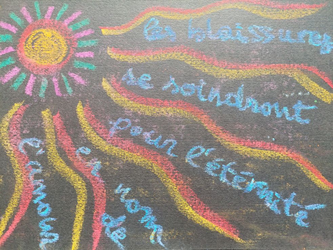 les blaissures
se soindront
pour l'étérnité
en nom
de
l'amour